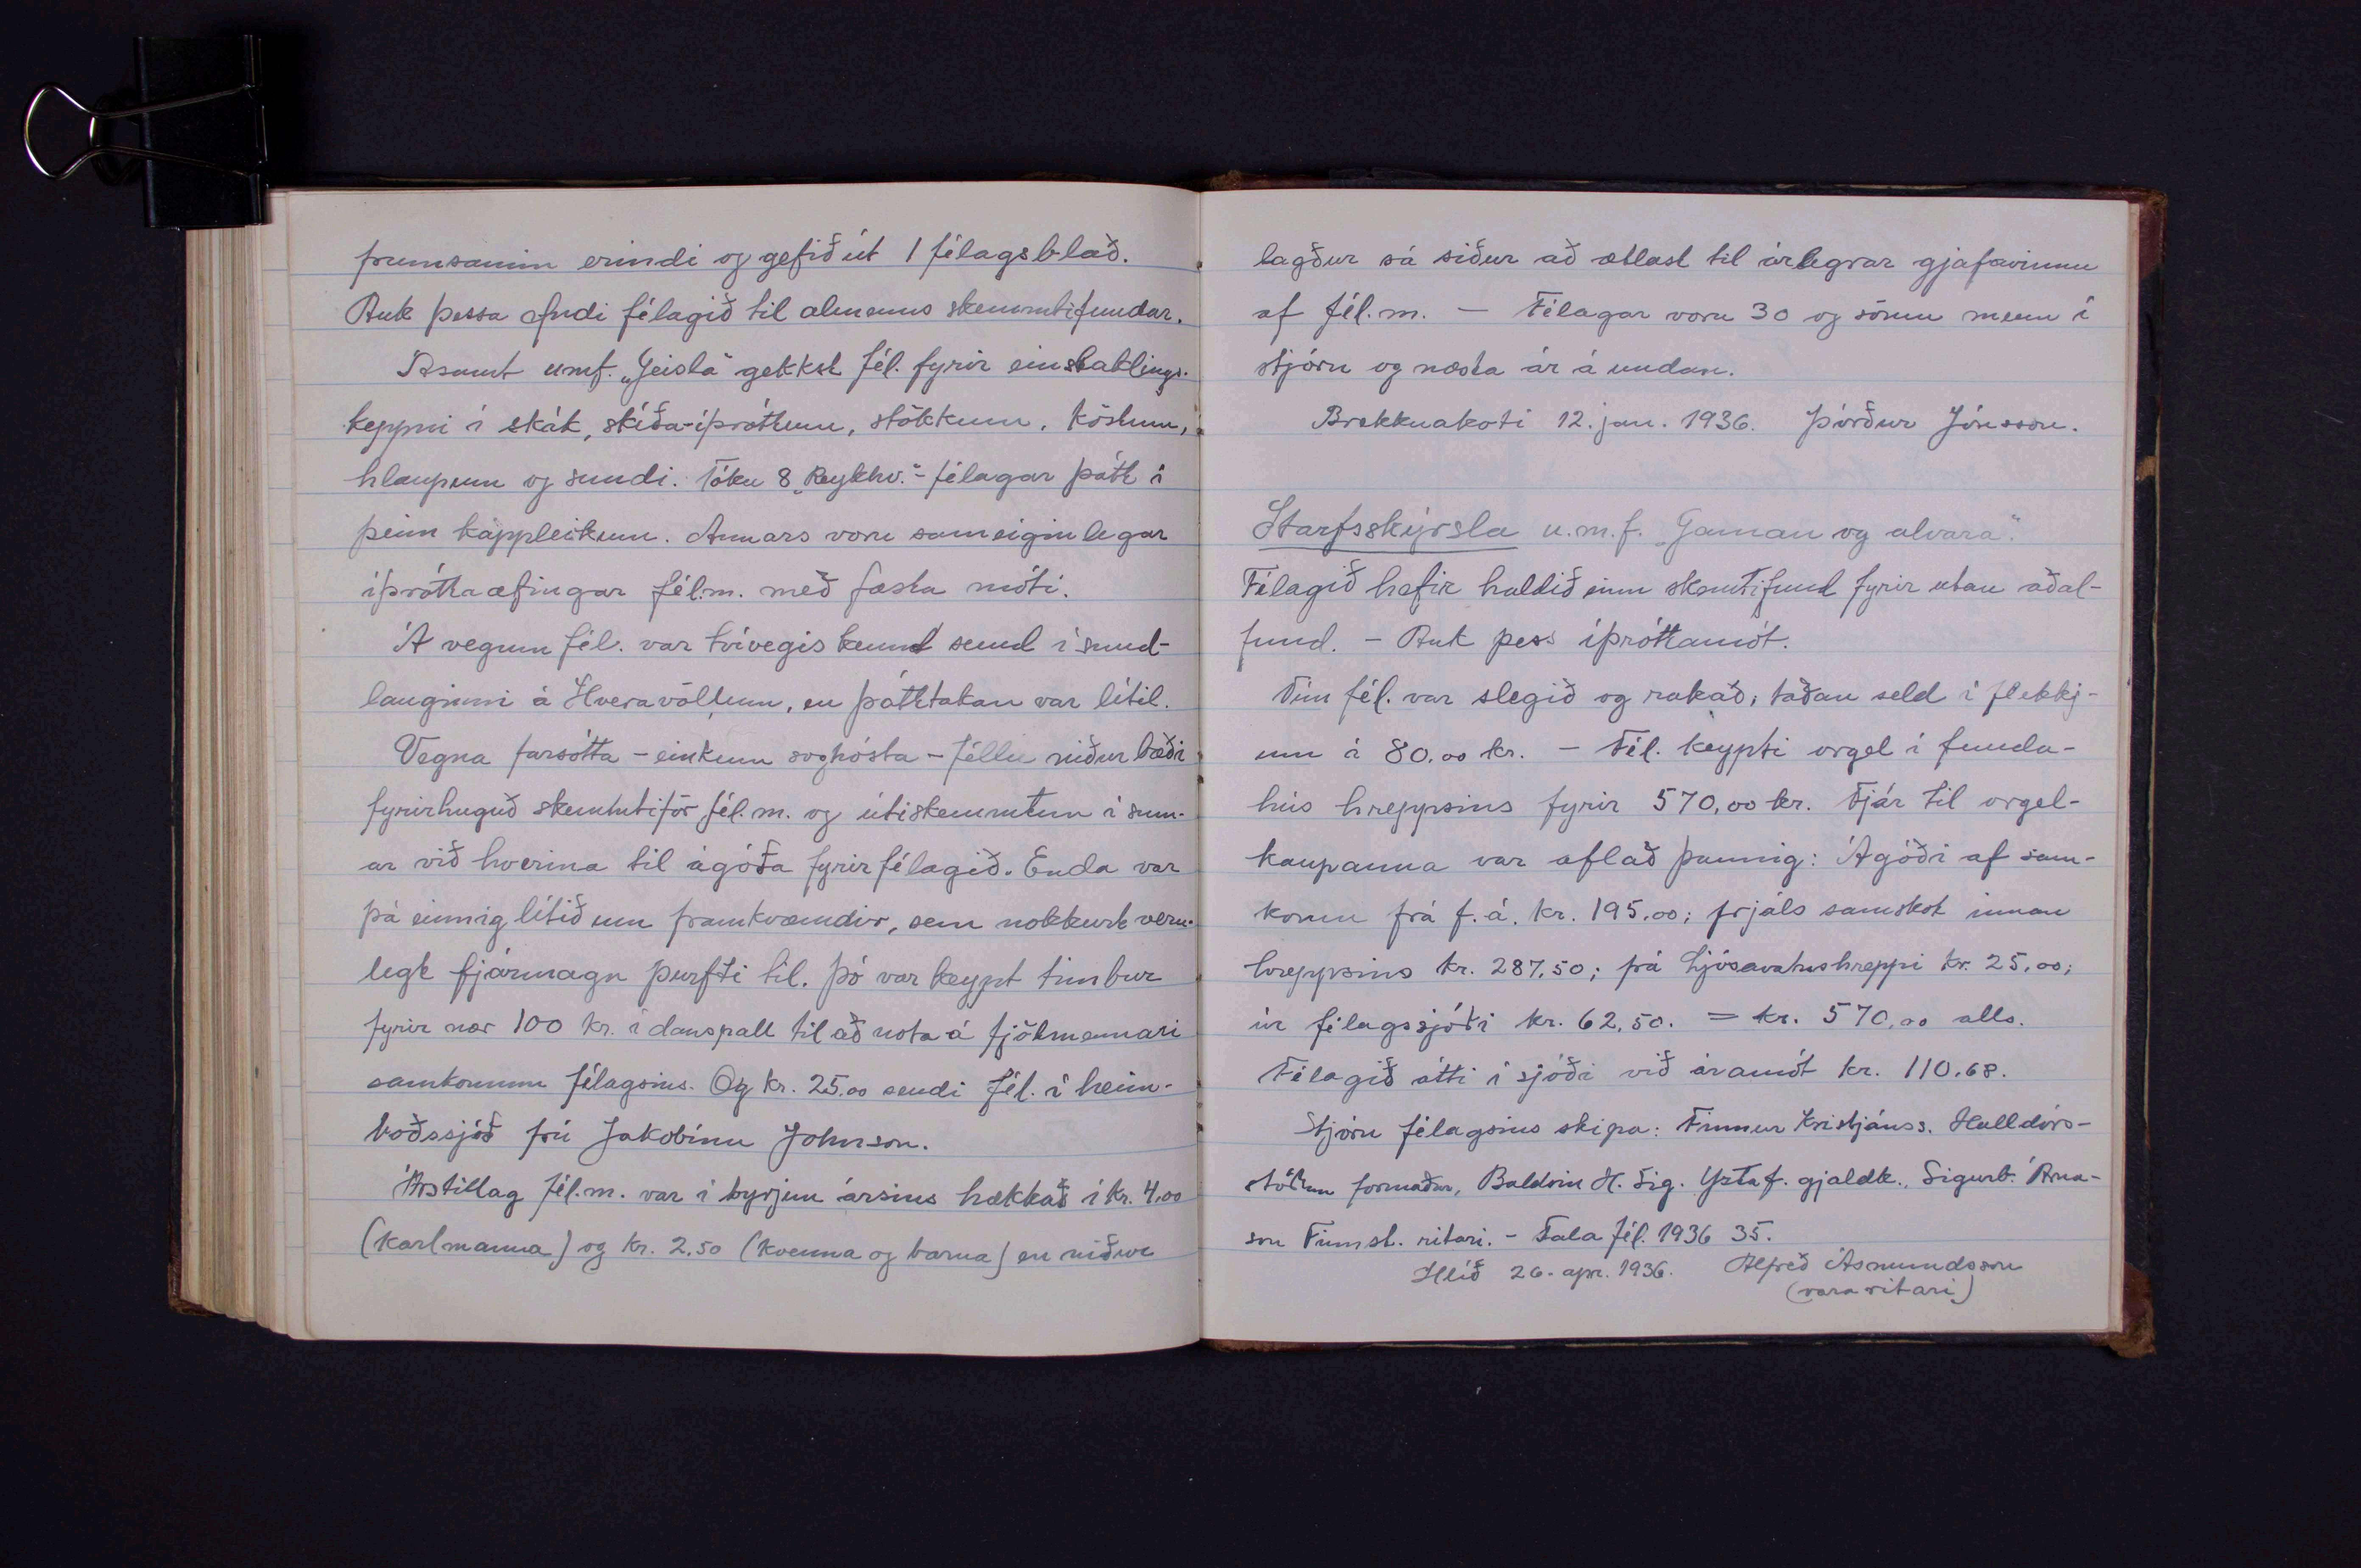 frumsamin erindi og gefið út 1 félagsblað.
Auk þessa efndi félagið til almenns skemmtifundar.
Ásamt umf. „Geisla" gekkst fél. fyrir einstaklings-
keppni í skák, skíða-íþróttum, stökkum, köstum,
hlaupum og sundi. Tóku 8 „Reykhv."-félagar þátt í
þeim kappleikum. Annars voru sameiginlegar
íþróttaæfingar fél.m. með fæsta móti.
Á vegum fél. var tvívegis kennt sund í sund-
lauginni á Hveravöllum, en þátttakan var lítil.
Vegna farsótta - einkum soghósta - féllu niður bæði
fyrirhuguð skemmtiför fél.m. og útiskemmtun í sum-
ar við hverina til ágóða fyrir félagið. Enda var
þá einnig lítið um framkvæmdir, sem nokkurt veru-
legt fjármagn þurfti til. Þó var keypt timbur
fyrir nær 100 kr. í danspall til að nota á fjölmennari
samkomum félagsins. Og kr. 25.00 sendi fél. í heim-
boðssjóð frú Jakobínu Johnson.
Árstillag fél.m. var í byrjun ársins hækkað í kr. 4,00
(karlmanna) og kr. 2.50 (kvenna og barna) en niður
lagður sá siður að ætlast til árlegrar gjafavinnu
af fél.m. — Félagar voru 30 og sömu menn í
stjórn og næsta ár á undan.
Brekknakoti 12. jan. 1936. Þórður Jónsson.
Starfsskýrsla u.m.f. „Gaman og alvara".
Félagið hefir haldið einn skemtifund fyrir utan aðal-
fund. - Auk þess íþróttamót.
Tún fél. var slegið og rakað; taðan seld í flekkj-
um á 80.00 kr. - Fél. keypti orgel í funda-
hús hreppsins fyrir 570,00 kr. Fjár til orgel-
kaupanna var aflað þannig: Ágóði af sam-
komu frá f.á. kr. 195.00; frjáls samskot innan
hreppsins kr. 287,50; frá Ljósavatnshreppi kr. 25,00;
úr félagssjóði kr. 62,50. = kr. 570,00 alls.
Félagið átti í sjóði við áramót kr. 110.68.
Stjórn félagsins skipa: Finnur Kristjánss. Halldórs-
stöðum formaður, Baldvin H. Sig. Yztaf. gjaldk., Sigurb. Árna-
son Finnst. ritari. - Tala fél. 1936 35.
Hlíð 26. apr. 1936. Alfreð Ásmundsson
(vararitari)